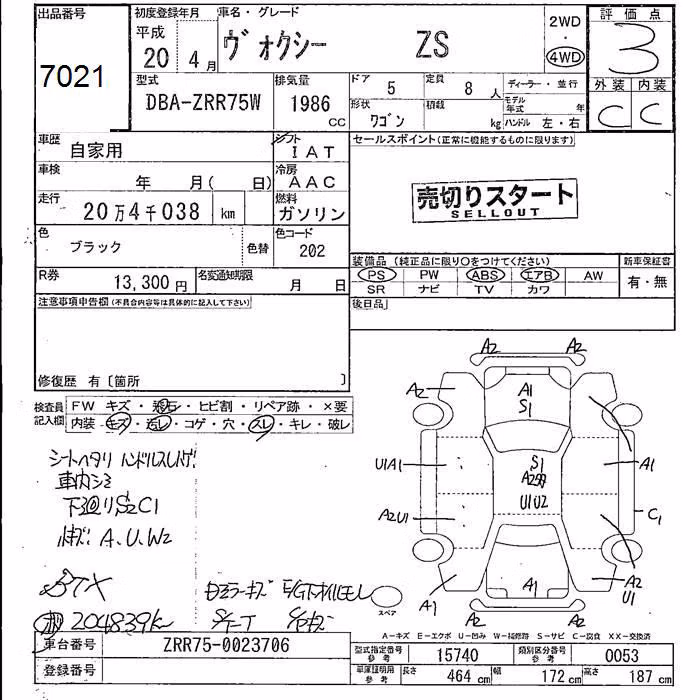 出品番号
7021
初度登録年月
平成
20 4月
車名・グレード
ヴォクシー ZS
2WD
・
4WD
評価点
3
外装 内装
C C
型式
DBA-ZRR75W
排気量
1986
CC
ドア 5
定員 8 人
形状 ワゴン
積載 kg
ディーラー・並行
モデル年式 年
ハンドル 左・右
車歴
自家用
シフト
IAT
車検
年 月( 日)
冷房
AAC
走行
20万4千038 km
燃料
ガソリン
色
ブラック
色替
色コード
202
R券
13,300円
名変通知期限
月 日
セールスポイント(正常に機能するものに限ります)
売切りスタート
SELLOUT
装備品 (純正品に限り○をつけてください)
PS PW ABS エアB AW
SR ナビ TV カワ
新車保証書
有・無
後日品
注意事項申告欄(不具合内容等は具体的に記入して下さい)
修復歴 有〔箇所 〕
検査員
記入欄
FW キズ・飛石・ヒビ割・リペア跡・×要
内装・キズ・汚レ・コゲ・穴・スレ・キレ・破レ
シートヘタリ ハンドルスレハゲ
車内シミ
下廻りS2C1
A、U、W2
204839K
A2 A2
A2 A1 A2
S1
U1A1 S1 A1
U1U2
A2U1 C1
A1 A1 A2
U1
A2 A2
スペア
A−キズ E−エクボ U−凹み W−補修跡 S−サビ C−腐食 XX−交換済
車台番号
ZRR75-0023706
登録番号
型式指定番号
参考
15740
類別区分番号
参考
0053
車庫証明用
参考
長さ 464 cm
幅 172 cm
高さ 187 cm